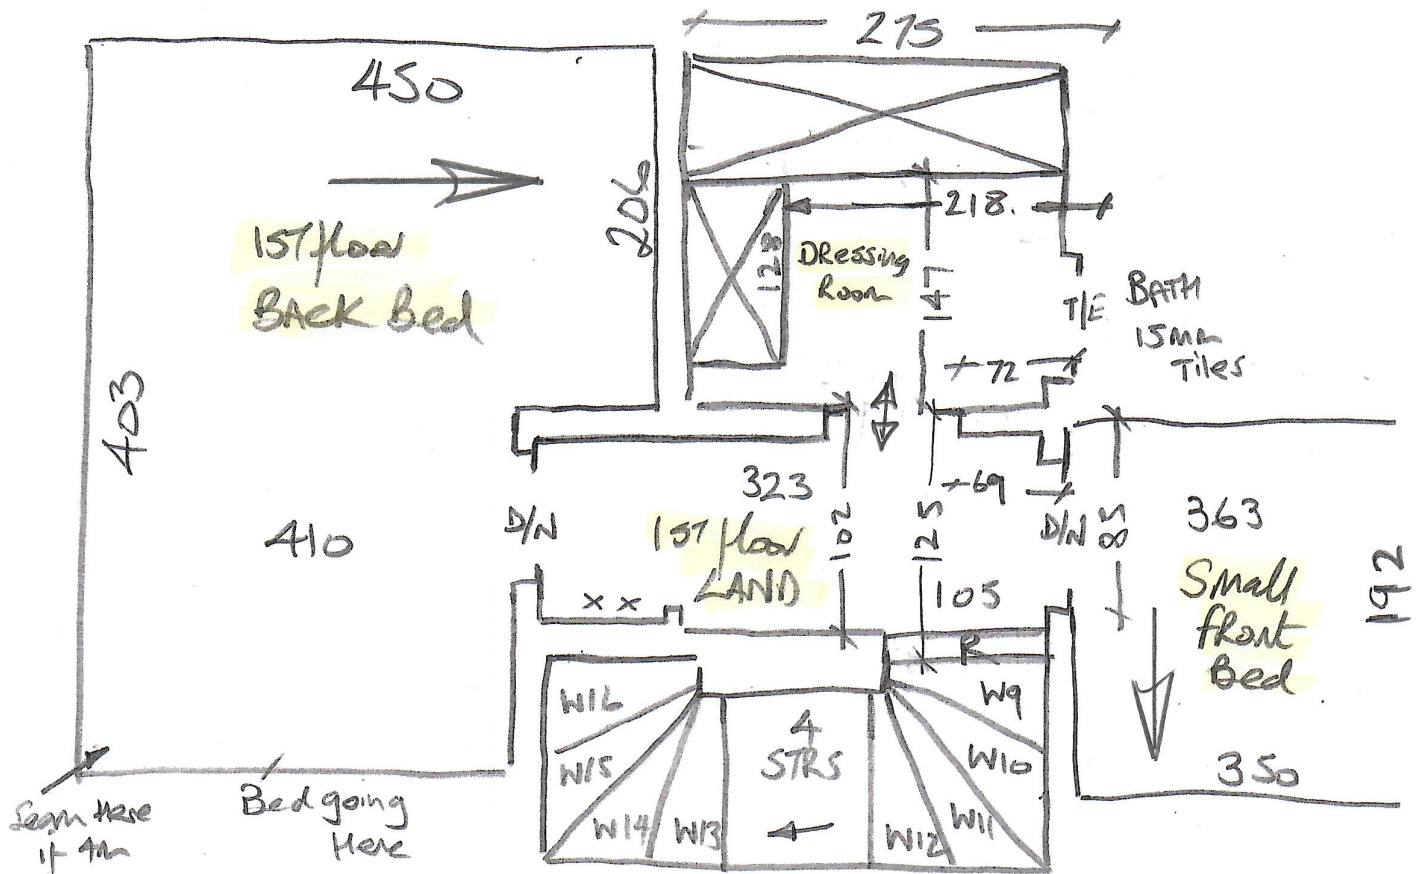 275
450
206
218.
1ST floor
BACK Bed
128
DRessing
Room
147
T/E
BATH
15mm
Tiles
72
403
410
D/N
323
1ST floor
LAND
102
125
69
D/N
85
363
Small
fRont
Bed
192
x x
105
R
W16
W15
W14
W13
4
STRS
W9
W10
W11
W12
350
Seam Here
if 4m
Bed going
Here